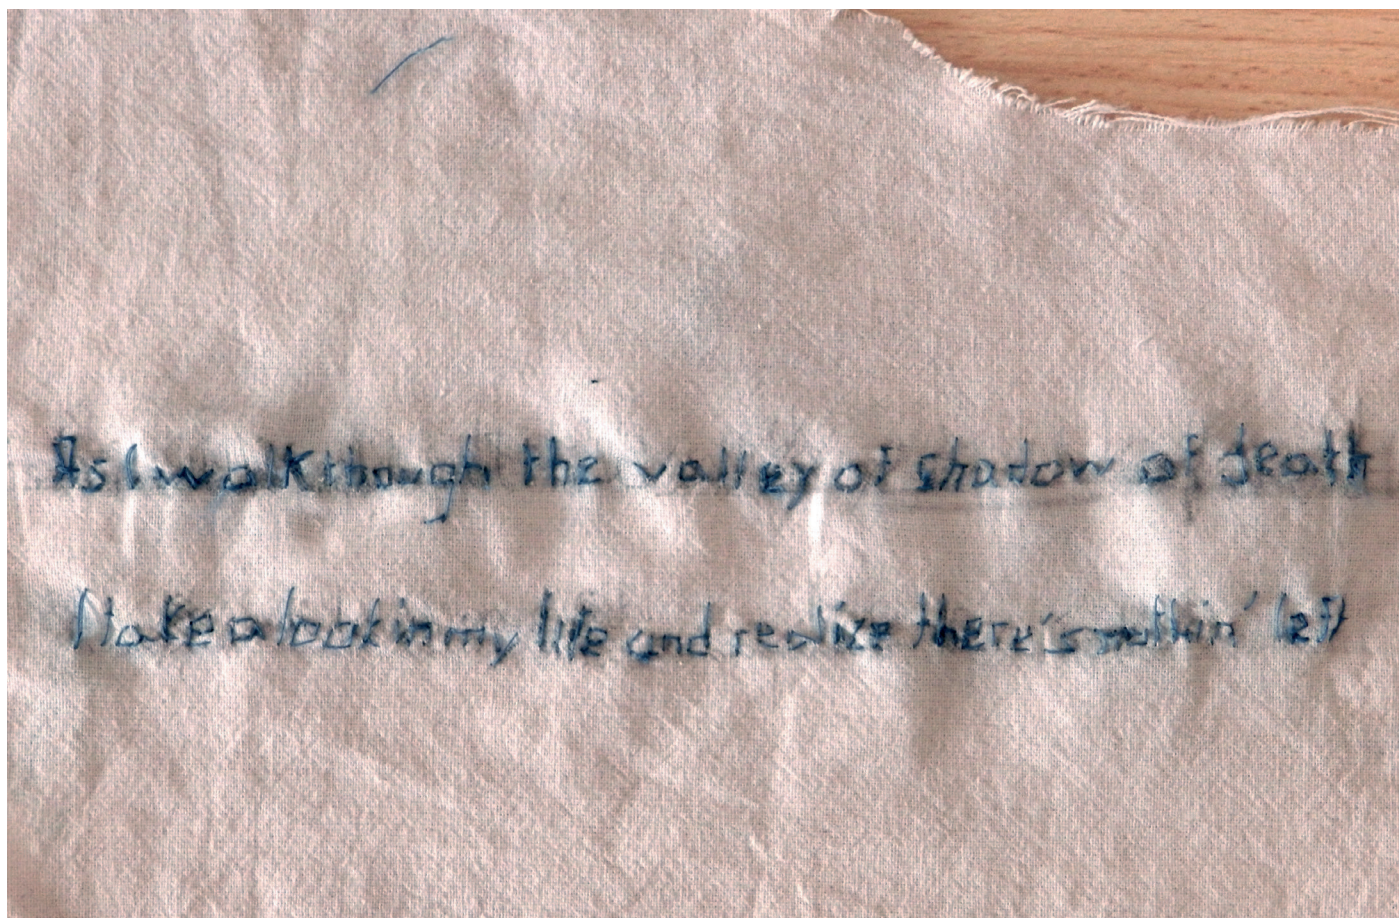 As I walk though the valley of shadow of death
I take a look in my life and realize there's nuthin' left